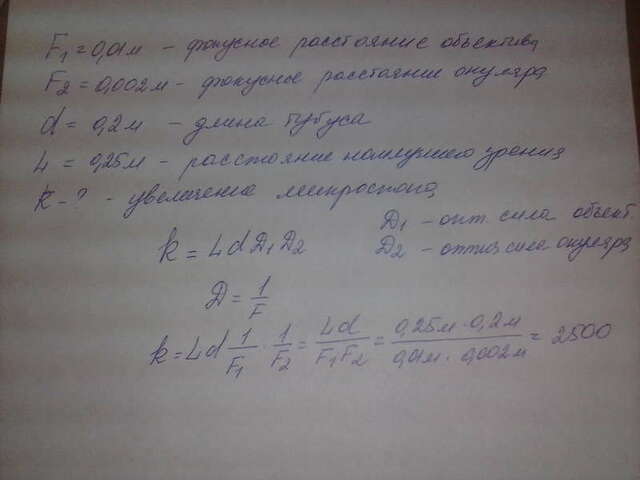 F₁ = 0,01м – фокусное расстояние объектива
F₂ = 0,002м – фокусное расстояние окуляра
d = 0,2м – длина тубуса
L = 0,25м – расстояние наилучшего зрения
k - ? - увеличение микроскопа
D₁ – опт. сила объект
k = L d D₁ D₂
D₂ – оптич сила окуляра
D = 1/F
k = L d 1/F₁ · 1/F₂ = Ld/F₁F₂ = 0,25м · 0,2м / 0,01м · 0,002м = 2500